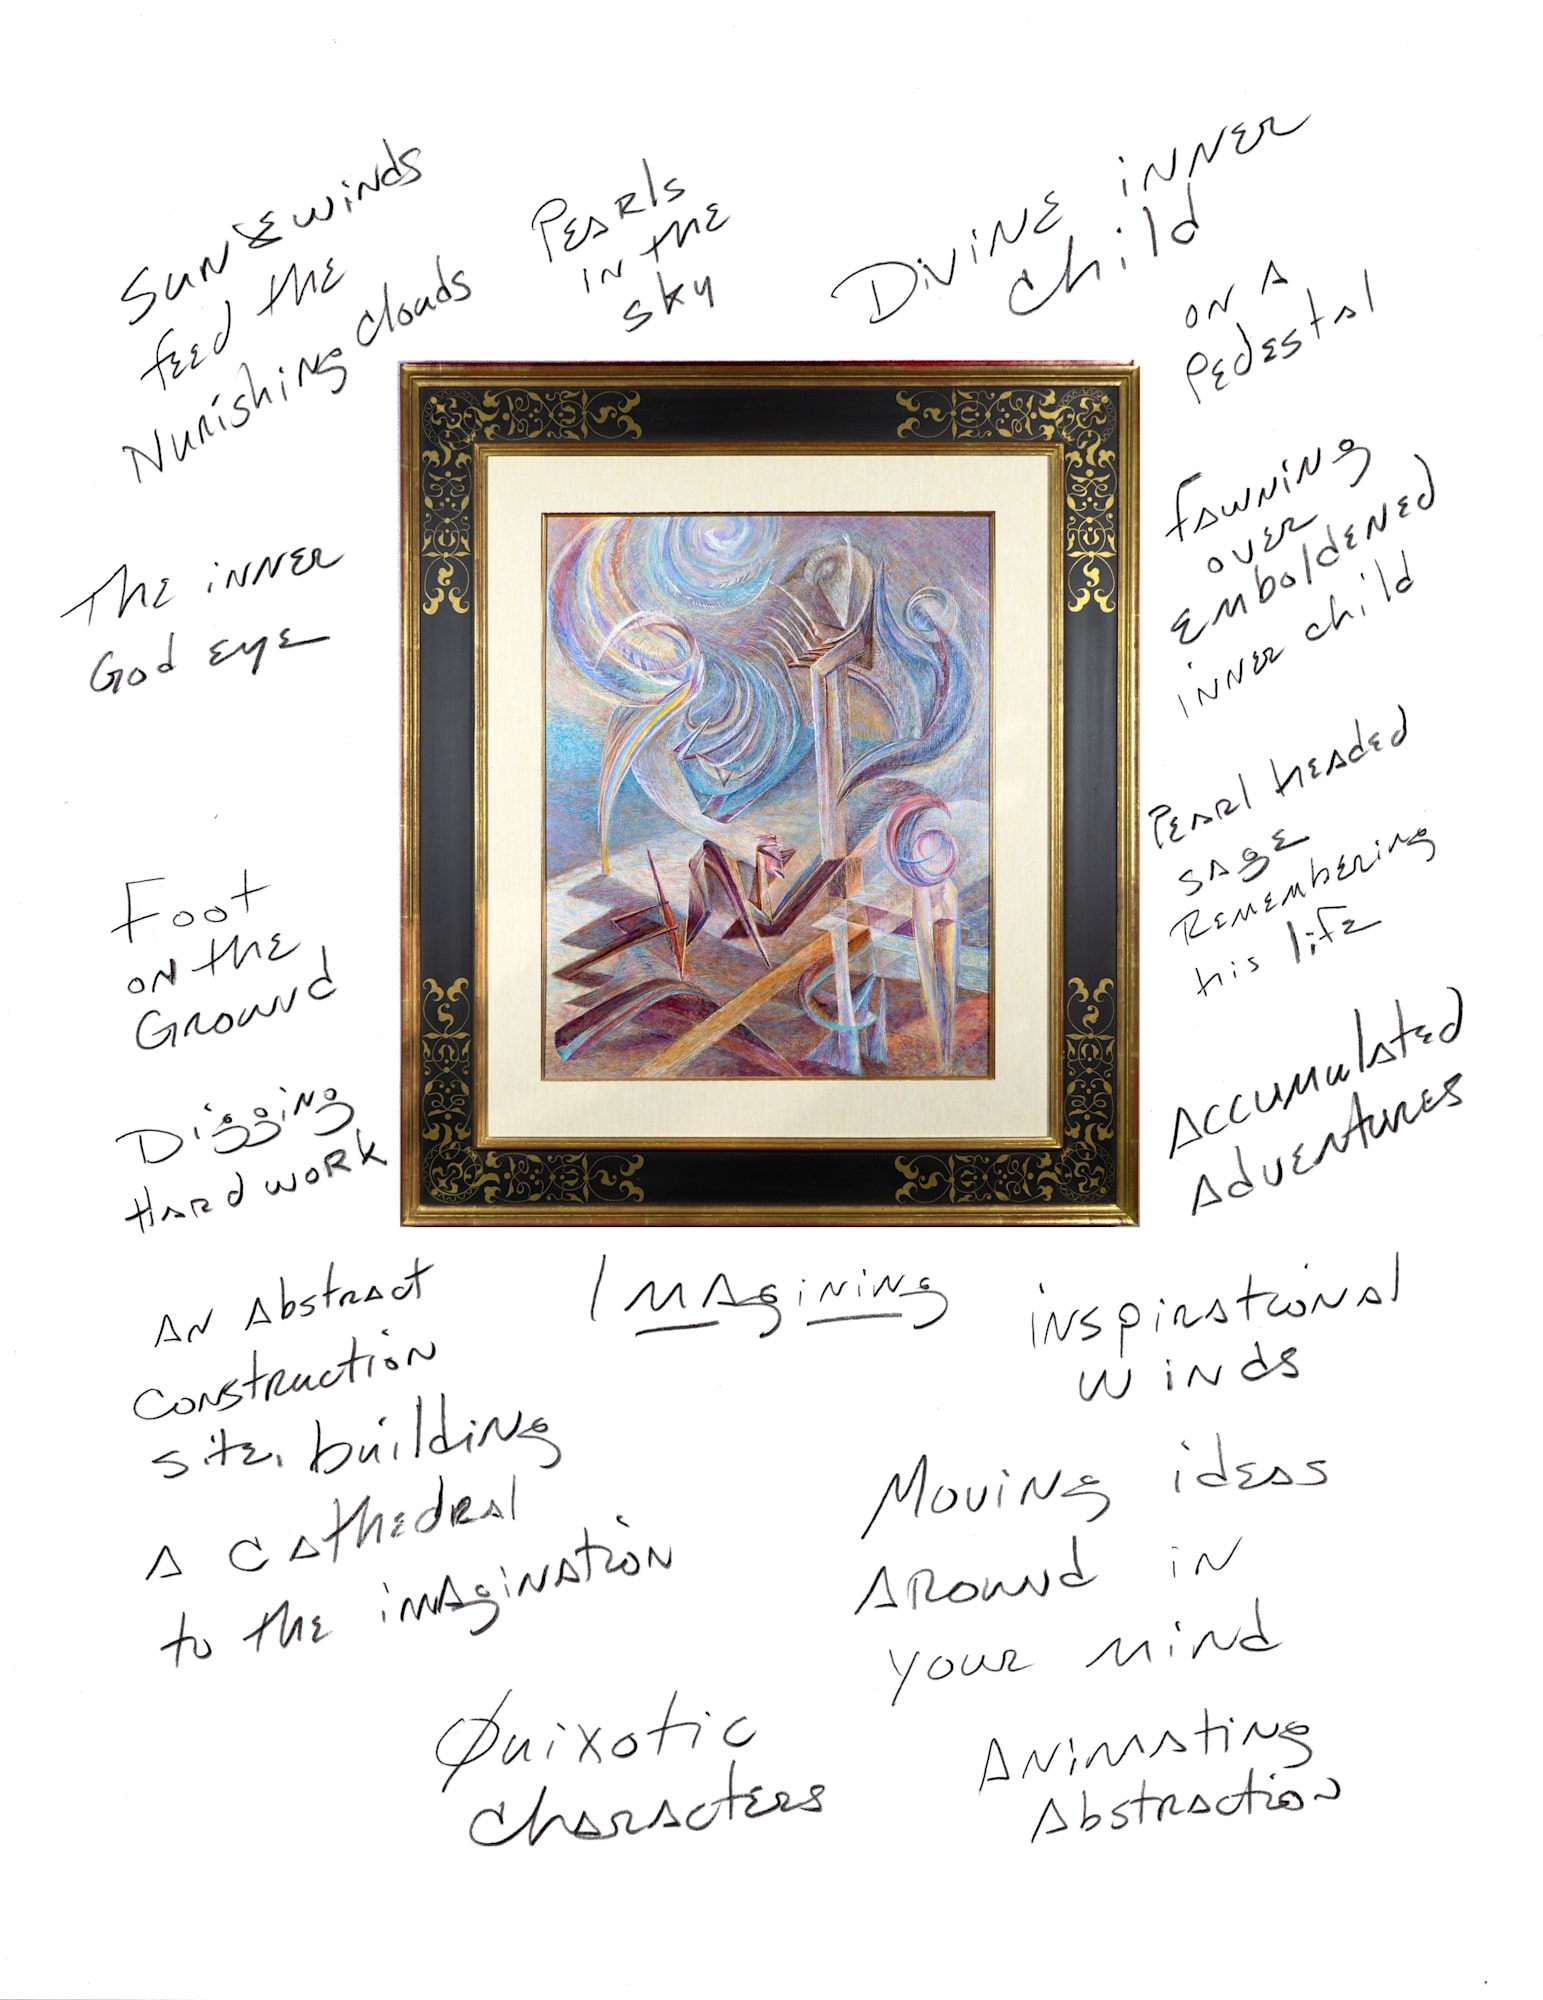 Sun & winds
feed the
Nurishing clouds
Pearls
in the
sky
Divine inner
child
on a
Pedestal
The inner
God eye
Fawning
over
Emboldened
inner child
Pearl headed
sage
Remembering
his life
Foot
on the
Ground
Digging
Hard work
Accumulated
Adventures
An Abstract
Construction
site, building
A Cathedral
to the imagination
Imagining
inspirational
winds
Moving ideas
Around in
your mind
Quixotic
Characters
Animating
Abstraction